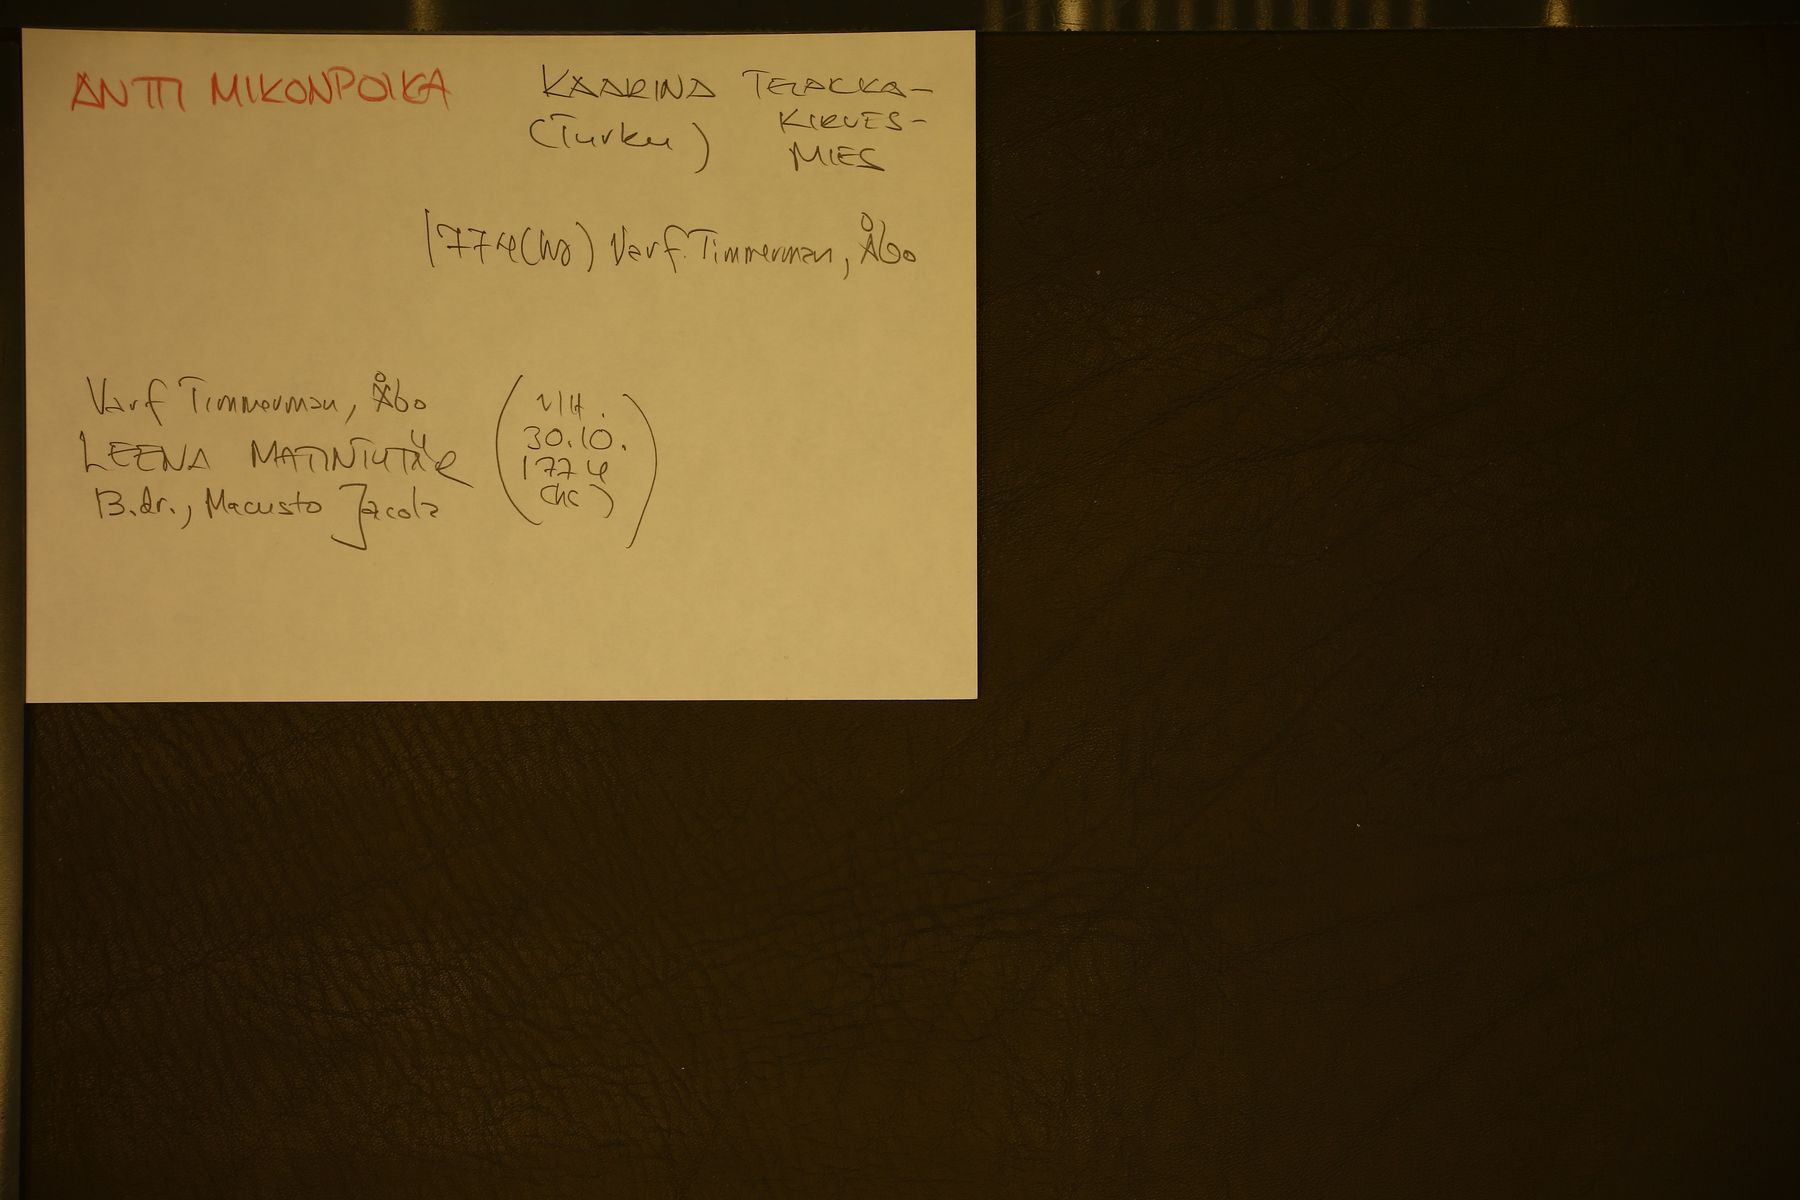 ANTTI MIKONPOIKA KAARINA TELAKKA-
(Turku) KIRVES-
MIES
1774 (ho) Varf. Timmerman, Åbo
Varf Timmerman, Åbo
LEENA MATINTYTÄR
B.dr., Macusto Jacola
v/H.
30.10.
1774
(hc)